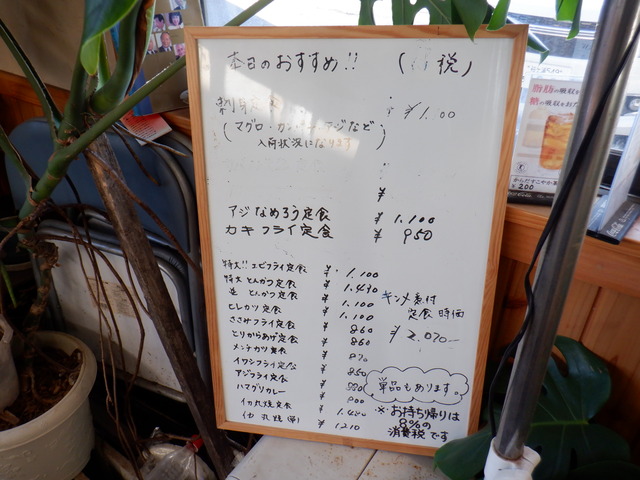 本日のおすすめ!! ( 税)
刺身定食
(マグロ・カ アジなど)
入荷状況になります
¥
アジなめろう定食 ¥ 1.100
カキフライ定食 ¥ 950
特大!!エビフライ定食 ¥ 1.100
特大とんかつ定食 ¥ 1.490
並 とんかつ定食 ¥ 1.100
ヒレカツ定食 ¥ 1.100
ささみフライ定食 ¥ 860
とりからあげ定食 ¥ 860
メンチカツ定食 ¥ 870
イワシフライ定食 ¥ 850
アジフライ定食 ¥
ハマグリカレー ¥ 900
イカ丸焼定食 ¥
¥ 1210
キンメ煮付
定食 時価
¥ 2.070ー
単品もあります。
※お持ち帰りは
8%の
消費税です
脂肪の吸収を
糖の吸収をお
¥200